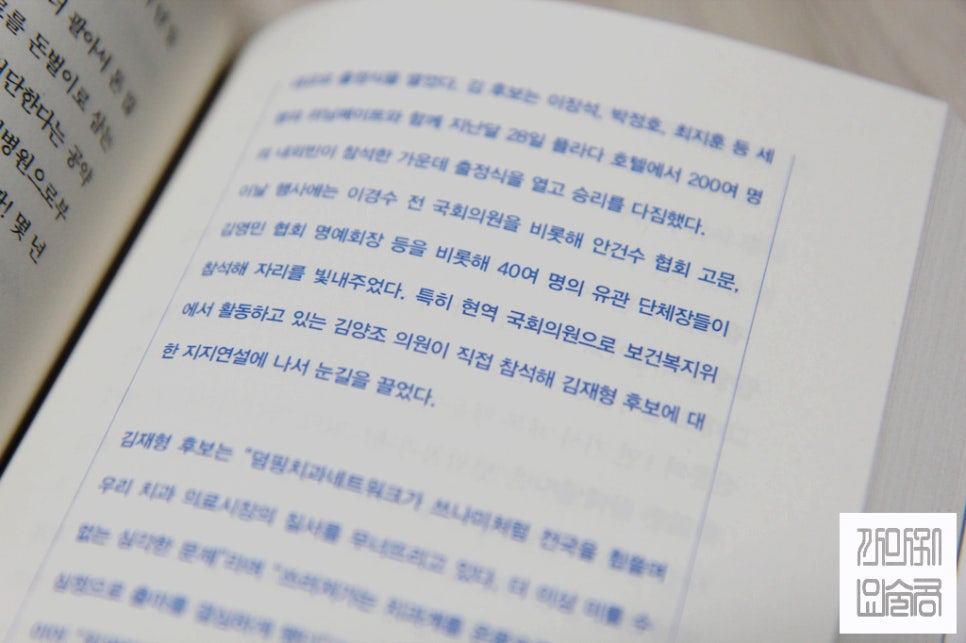 러 팔아서 돈 많
를 돈벌이로 삼는
단한다는 공약
병원으로부
다! 몇 년
출정식을 열었다. 김 후보는 이장석, 박정호, 최지훈 등 세
명의 러닝메이트와 함께 지난달 28일 플라다 호텔에서 200여 명
의 내외빈이 참석한 가운데 출정식을 열고 승리를 다짐했다.
이날 행사에는 이경수 전 국회의원을 비롯해 안건수 협회 고문,
김영민 협회 명예회장 등을 비롯해 40여 명의 유관 단체장들이
참석해 자리를 빛내주었다. 특히 현역 국회의원으로 보건복지위
에서 활동하고 있는 김양조 의원이 직접 참석해 김재형 후보에 대
한 지지연설에 나서 눈길을 끌었다.
김재형 후보는 "덤핑치과네트워크가 쓰나미처럼 전국을 휩쓸며
우리 치과 의료시장의 질서를 무너뜨리고 있다. 더 이상 미룰 수
없는 심각한 문제"라며
심정으로 출마를 결심하게